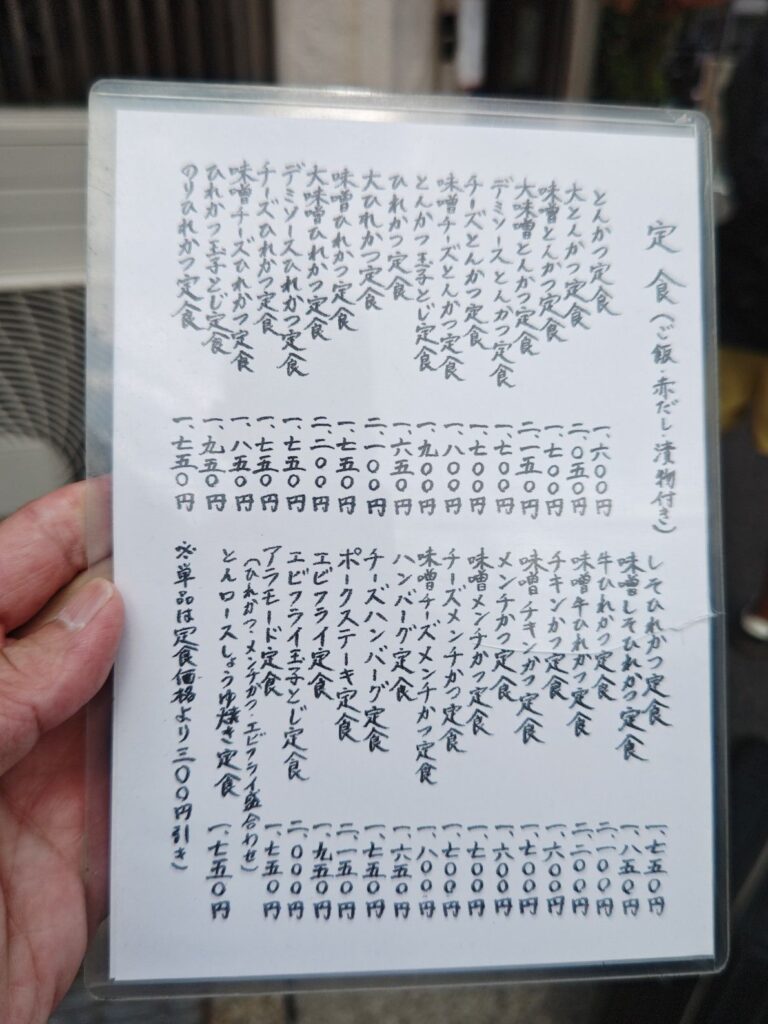 定食(ご飯・赤だし・漬物付き)
とんかつ定食 一、六〇〇円
大とんかつ定食 二、〇五〇円
味噌とんかつ定食 一、七〇〇円
大味噌とんかつ定食 二、一五〇円
デミソースとんかつ定食 一、七〇〇円
チーズとんかつ定食 一、七〇〇円
味噌チーズとんかつ定食 一、八〇〇円
とんかつ玉子とじ定食 一、九〇〇円
ひれかつ定食 一、六五〇円
大ひれかつ定食 二、一〇〇円
味噌ひれかつ定食 一、七五〇円
大味噌ひれかつ定食 二、二〇〇円
デミソースひれかつ定食 一、七五〇円
チーズひれかつ定食 一、七五〇円
味噌チーズひれかつ定食 一、八五〇円
ひれかつ玉子とじ定食 一、九五〇円
のりひれかつ定食 一、七五〇円
しそひれかつ定食 一、七五〇円
味噌しそひれかつ定食 一、八五〇円
牛ひれかつ定食 二、一〇〇円
味噌牛ひれかつ定食 二、二〇〇円
チキンかつ定食 一、六〇〇円
味噌チキンかつ定食 一、七〇〇円
メンチかつ定食 一、六〇〇円
味噌メンチかつ定食 一、七〇〇円
チーズメンチかつ定食 一、七〇〇円
味噌チーズメンチかつ定食 一、八〇〇円
ハンバーグ定食 一、六五〇円
チーズハンバーグ定食 一、七五〇円
ポークステーキ定食 二、一五〇円
エビフライ定食 一、九五〇円
エビフライ玉子とじ定食 二、〇〇〇円
アラモード定食 一、七五〇円
(ひれかつ・メンチかつ・エビフライ盛合わせ)
とんロースしょうゆ焼き定食 一、七五〇円
※単品は定食価格より三〇〇円引き)